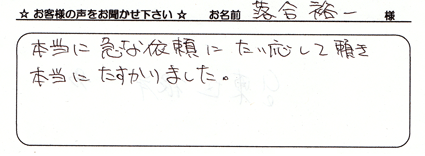 ☆ お客様の声をお聞かせ下さい ☆ お名前 落合裕一 様
本当に急な依頼にたい応して頼き
本当にたすかりました。